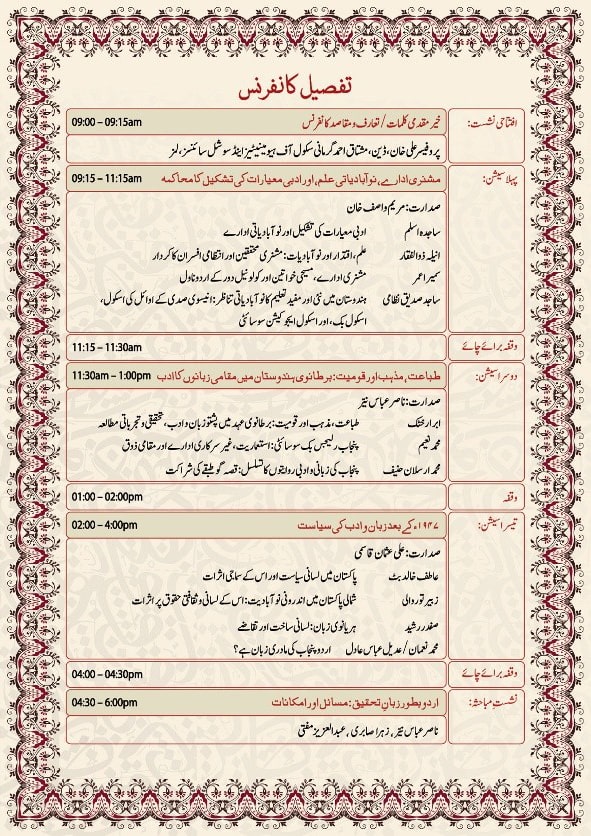 تفصیل کانفرنس
افتتاحی نشست: خیر مقدمی کلمات / تعارف و مقاصد کانفرنس 09:00 – 09:15am
پروفیسر علی خان، ڈین، مشتاق احمد گرمانی سکول آف ہیومینیٹیز اینڈ سوشل سائنسز، لمز
پہلا سیشن: مشنری ادارے، نو آبادیاتی علم، اور ادبی معیارات کی تشکیل کا محاکمہ 09:15 – 11:15am
صدارت: مریم واصف خان
ساجدہ اسلم ادبی معیارات کی تشکیل اور نو آبادیاتی ادارے
انیلہ ذوالفقار علم، اقتدار اور نو آبادیات: مشنری محققین اور انتظامی افسران کا کردار
سمیر اعمر مشنری ادارے، مسیحی خواتین اور کولونیل دور کے اردو ناول
ساجد صدیق نظامی ہندوستان میں نئی اور مفید تعلیم کا نو آبادیاتی تناظر: انیسویں صدی کے اوائل کی اسکول،
اسکول بک، اور اسکول ایجوکیشن سوسائٹی
وقفہ برائے چائے 11:15 – 11:30am
دوسرا سیشن: طباعت، مذہب اور قومیت: برطانوی ہندوستان میں مقامی زبانوں کا ادب 11:30am – 1:00pm
صدارت: ناصر عباس نیّر
ابرار خٹک طباعت، مذہب اور قومیت: برطانوی عہد میں پشتو زبان و ادب، تحقیقی و تجرباتی مطالعہ
محمد نعیم پنجاب ریلیجس بک سوسائٹی: استعماریت، غیر سرکاری ادارے اور مقامی ذوق
محمد ارسلان حنیف پنجاب کی زبانی و ادبی روایتوں کا تسلسل: قصہ گو طبقے کی شراکت
وقفہ 01:00 – 02:00pm
تیسرا سیشن: ۱۹۴۷ء کے بعد زبان و ادب کی سیاست 02:00 – 4:00pm
صدارت: علی عثمان قاسمی
عاطف خالد بٹ پاکستان میں لسانی سیاست اور اس کے سماجی اثرات
زبیر توروالی شمالی پاکستان میں اندرونی نو آبادیت: اس کے لسانی و ثقافتی حقوق پر اثرات
صفدر رشید ہریانوی زبان: لسانی ساخت اور تقاضے
محمد نعمان / عدیل عباس عادل اردو پنجاب کی مادری زبان ہے؟
وقفہ برائے چائے 04:00 – 04:30pm
نشست مباحثہ: اردو بطور زبانِ تحقیق: مسائل اور امکانات 04:30 – 6:00pm
ناصر عباس نیّر، زہرا صابری، عبدالعزیز مفتی